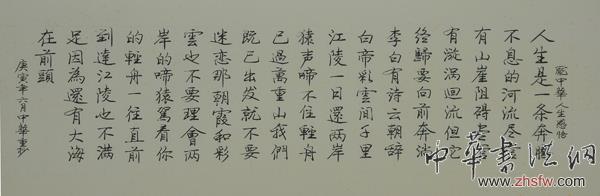 录中华人生感悟
人生是一条奔腾
不息的河流尽管
有山崖阻碍尽管
有漩涡回流但它
终归要向前奔淌
李白有诗云朝辞
白帝彩云间千里
江陵一日还两岸
猿声啼不住轻舟
已过万重山我们
既已出发就不要
迷恋那朝霞和彩
云也不要理会两
岸的啼猿驾着你
的轻舟一往直前
到达江陵也不满
足因为还有大海
在前头
庚寅年六月中华重抄
中华书法网
www.zhsfw.com